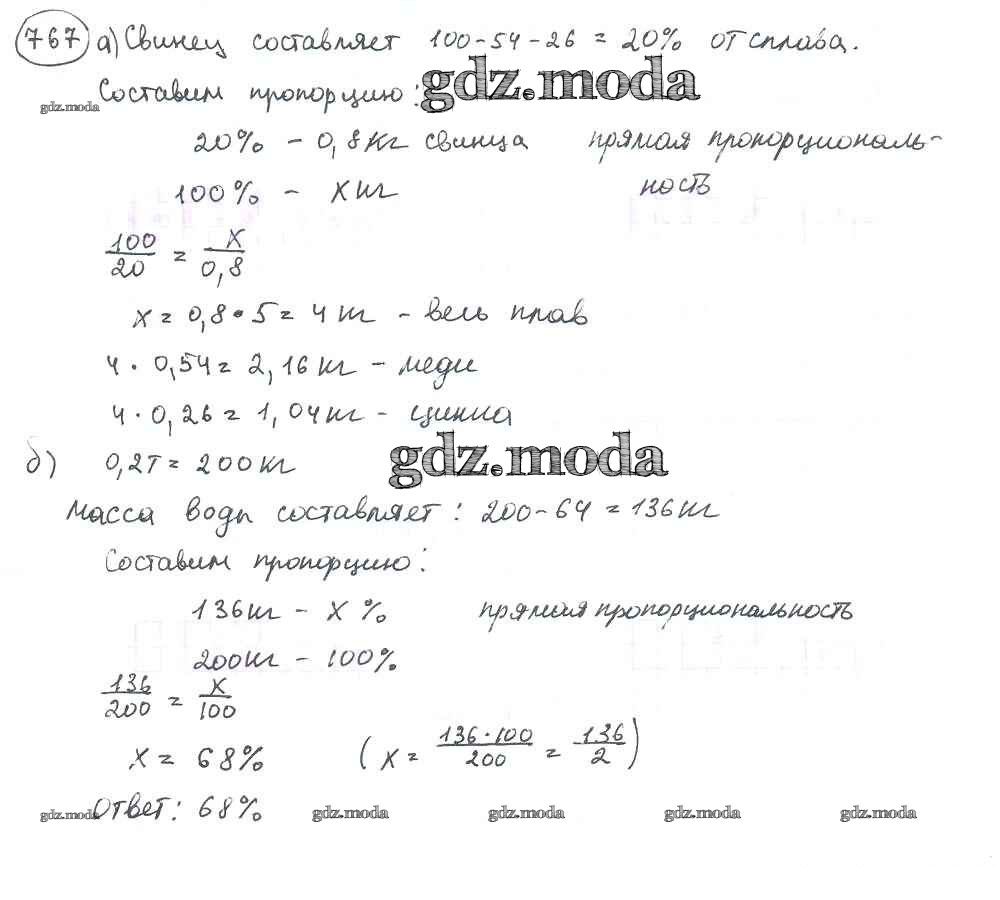 767 а) Свинец составляет 100-54-26 = 20% от сплава.
gdz.moda
Составим пропорцию:
gdz.moda
20% - 0,8 кг свинца прямая пропорциональ-
100% - x кг ность
100/20 = x/0,8
x = 0,8 • 5 = 4 кг - весь плав
4 • 0,54 = 2,16 кг - меди
4 • 0,26 = 1,04 кг - цинка
gdz.moda
б) 0,2т = 200 кг
Масса воды составляет: 200-64 = 136 кг
Составим пропорцию:
136 кг - x % прямая пропорциональность
200 кг - 100%
136/200 = x/100
x = 68% (x = 136•100/200 = 136/2)
Ответ: 68%
gdz.moda gdz.moda gdz.moda gdz.moda gdz.moda